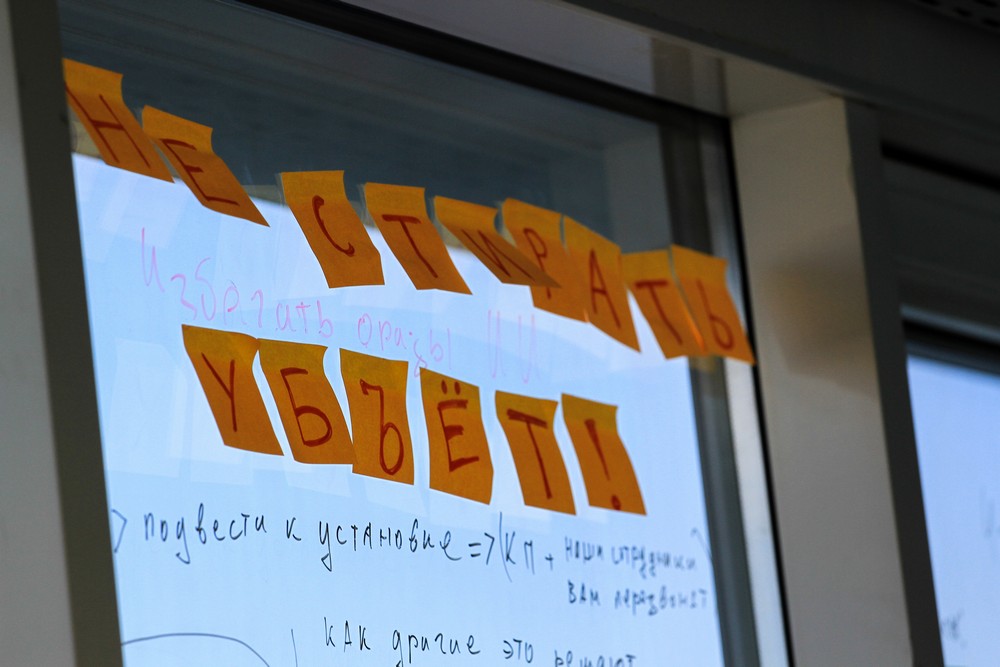 НЕ СТИРАТЬ
Избегать фразы
УБЪЁТ!
подвести к установке => (КП + наши сотрудники
вам перезвонят
КАК другие это решают